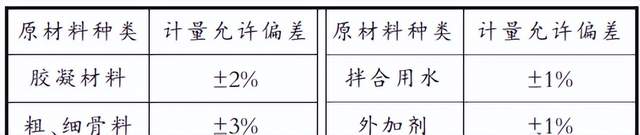 原材料种类 计量允许偏差 原材料种类 计量允许偏差
胶凝材料 ±2% 拌合用水 ±1%
粗、细骨料 ±3% 外加剂 ±1%